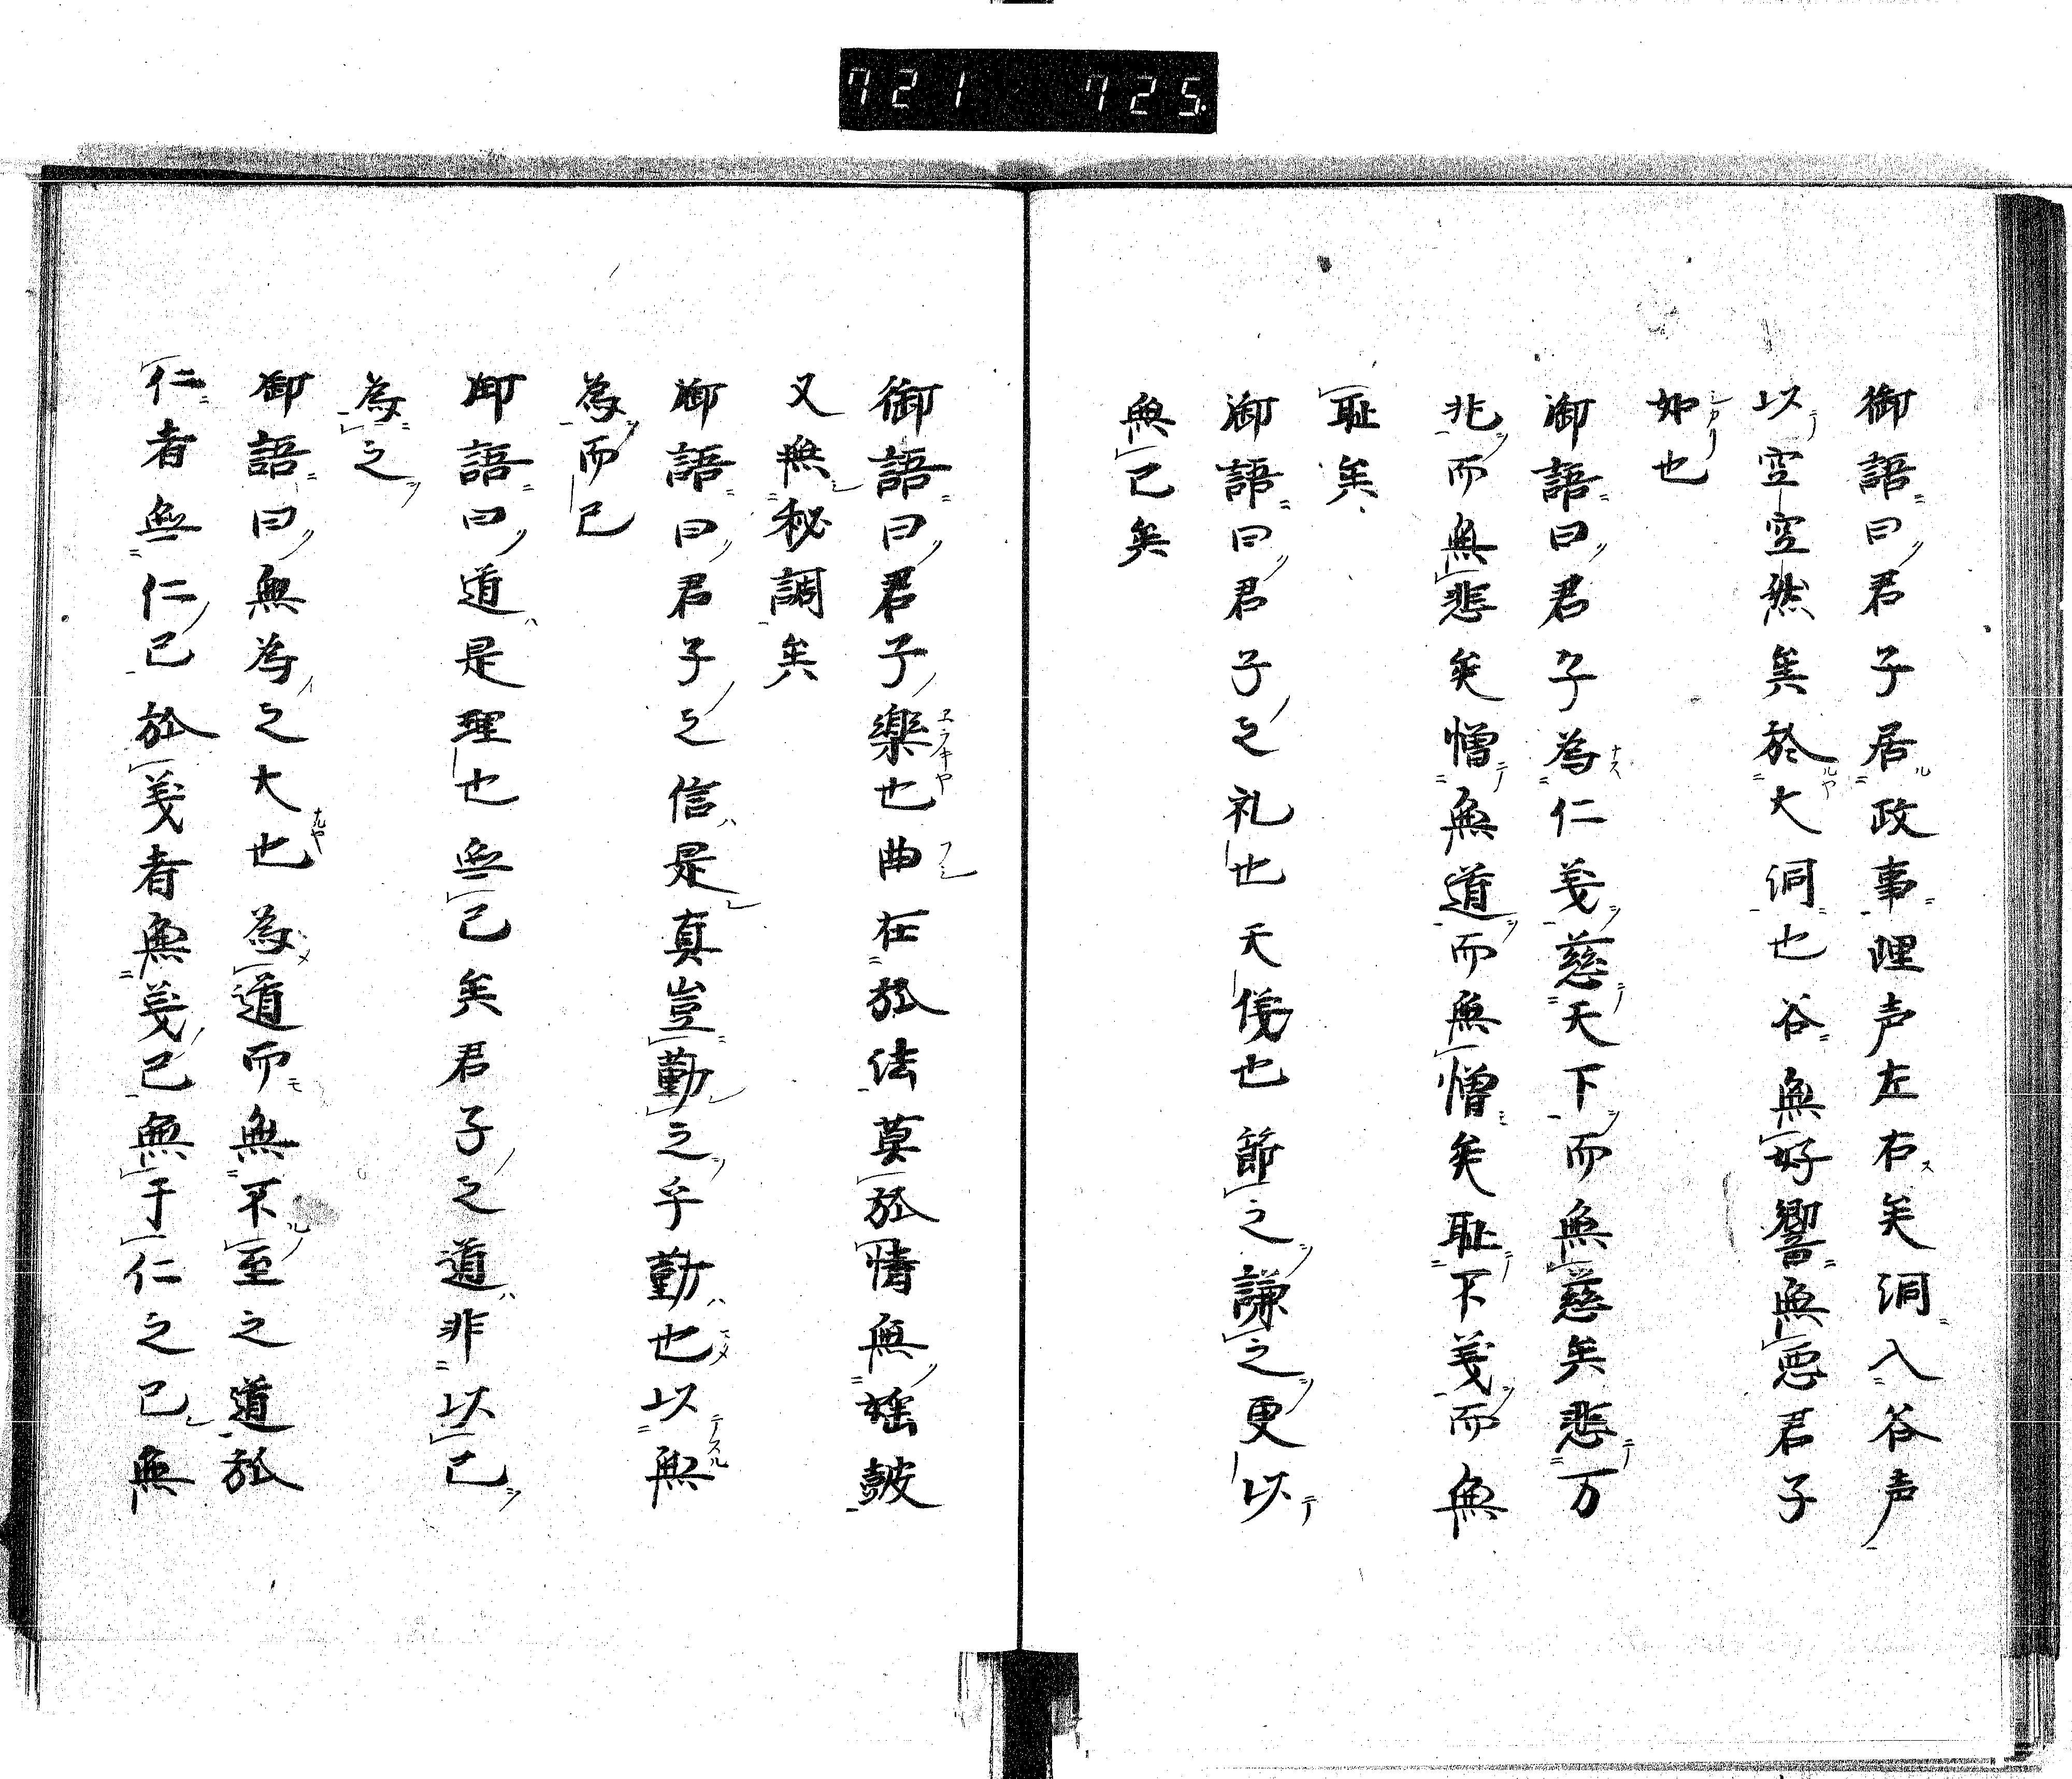 721 725
御語曰君子居政事哩声左右矣洞入谷声
以空空然矣於大洞也谷無好響無悪君子
如也
御語曰君子為仁義慈天下而無慈矣悲万
兆而無悲矣憎無道而無憎矣耻不義而無
耻矣
御語曰君子之礼也天儀也節之謙之更以
無已矣
御語曰君子樂也曲在於法莫於情無瑶鼓
又無秘調矣
御語曰君子之信是真豈勤之乎勤也以無
為而已
御語曰道是理也無已矣君子之道非以已
為之
御語曰無為之大也為道而無不至之道於
仁者無仁已於義者無義已無于仁之已無